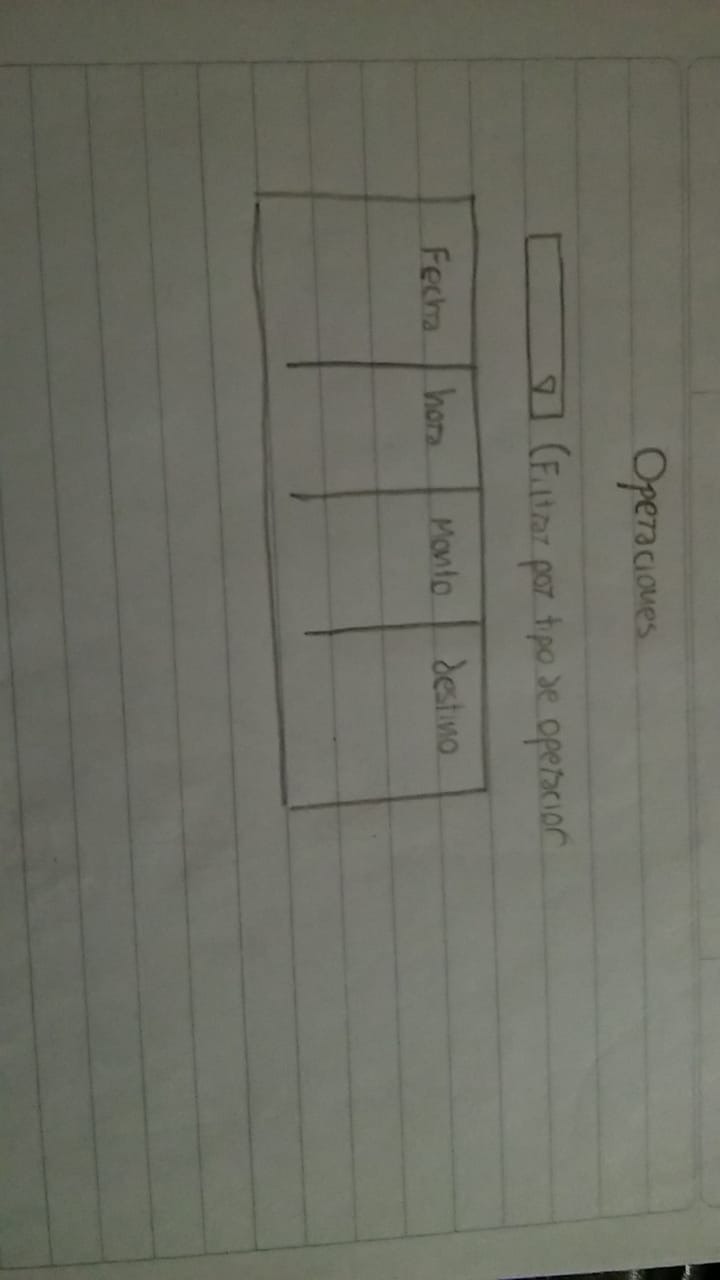 Operaciones
(Filtrar por tipo de operacion
Fecha hora Monto destino